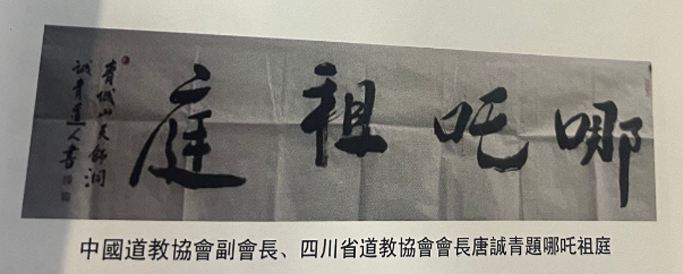 哪吒祖庭
青城山天師洞
誠青道人書
中國道教協會副會長、四川省道教協會會長唐誠青題哪吒祖庭